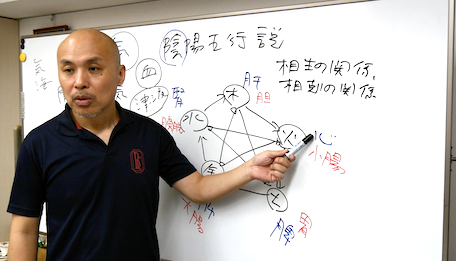 陰陽五行説
相生の関係
相剋の関係
気
血
津液
腎
膀胱
水
木
肝
胆
火
心
小腸
金
大腸
土
脾
胃